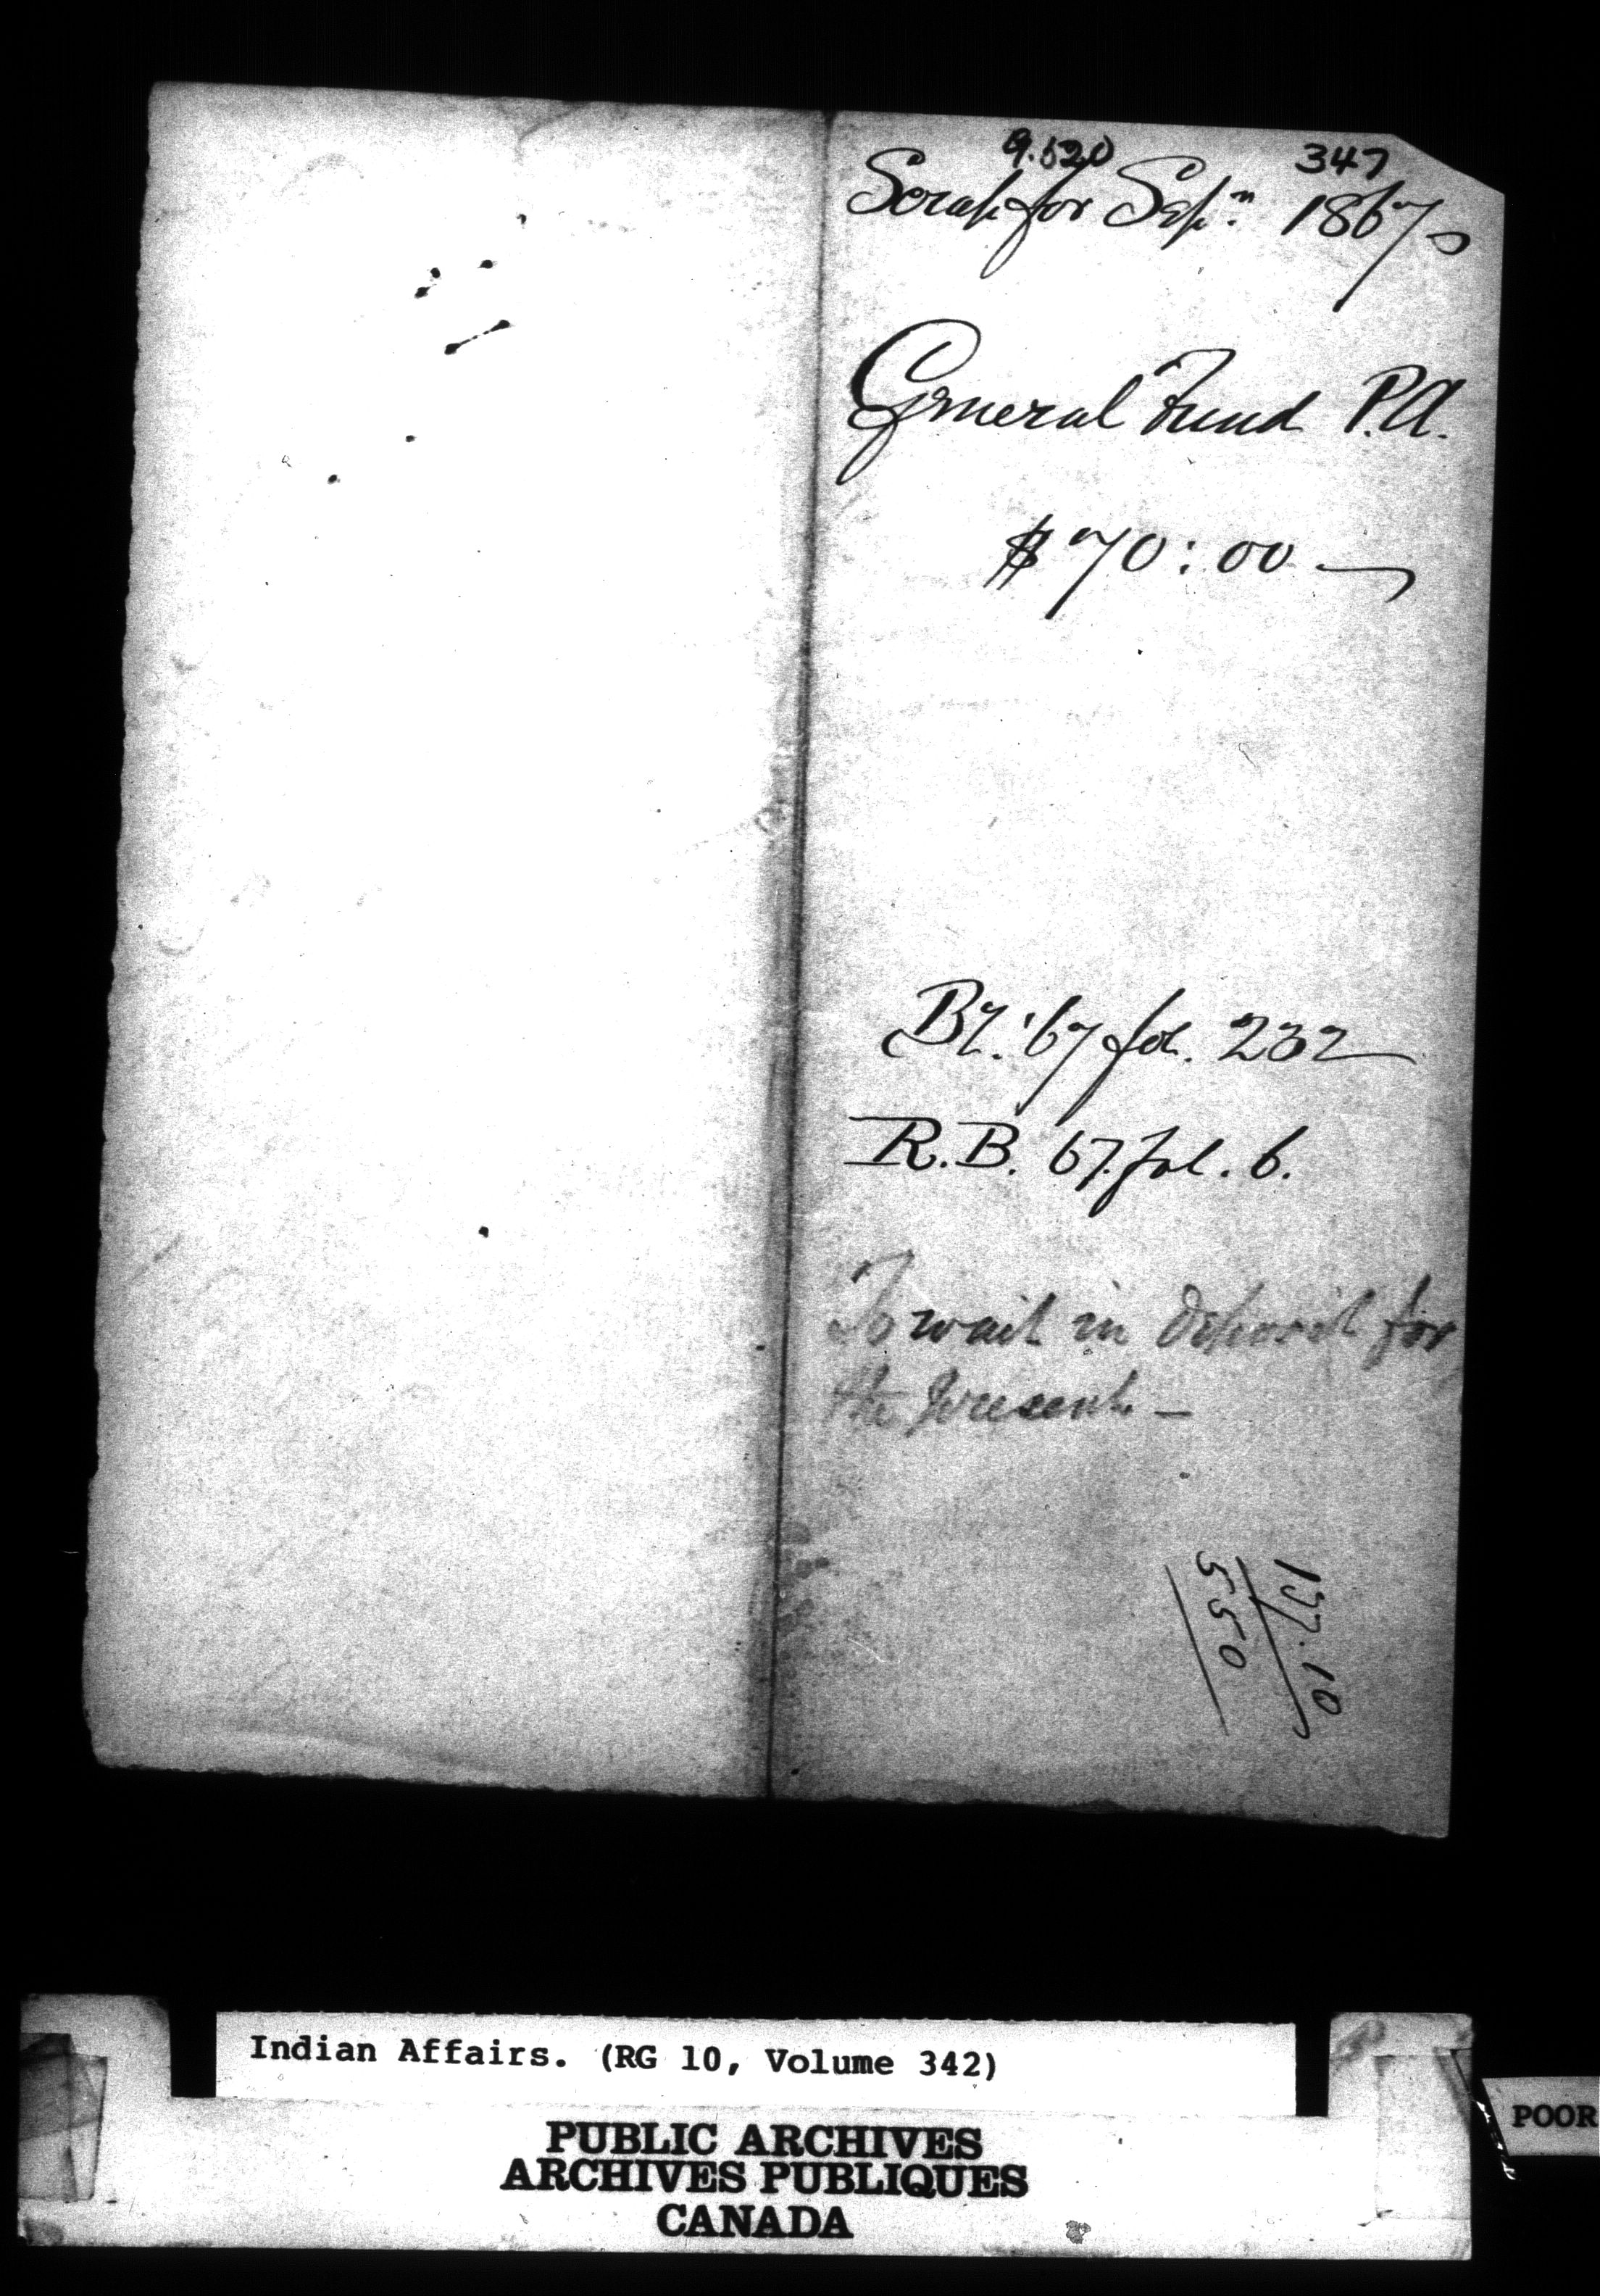 9.520 347
Scrap for Sepr. 1867
General Fund P.A.
$70:00
'67 fol. 232
R.B. 67. fol. 6.
To wait in deposit for
the present. —
137.10
5550
Indian Affairs. (RG 10, Volume 342)
POOR
PUBLIC ARCHIVES
ARCHIVES PUBLIQUES
CANADA